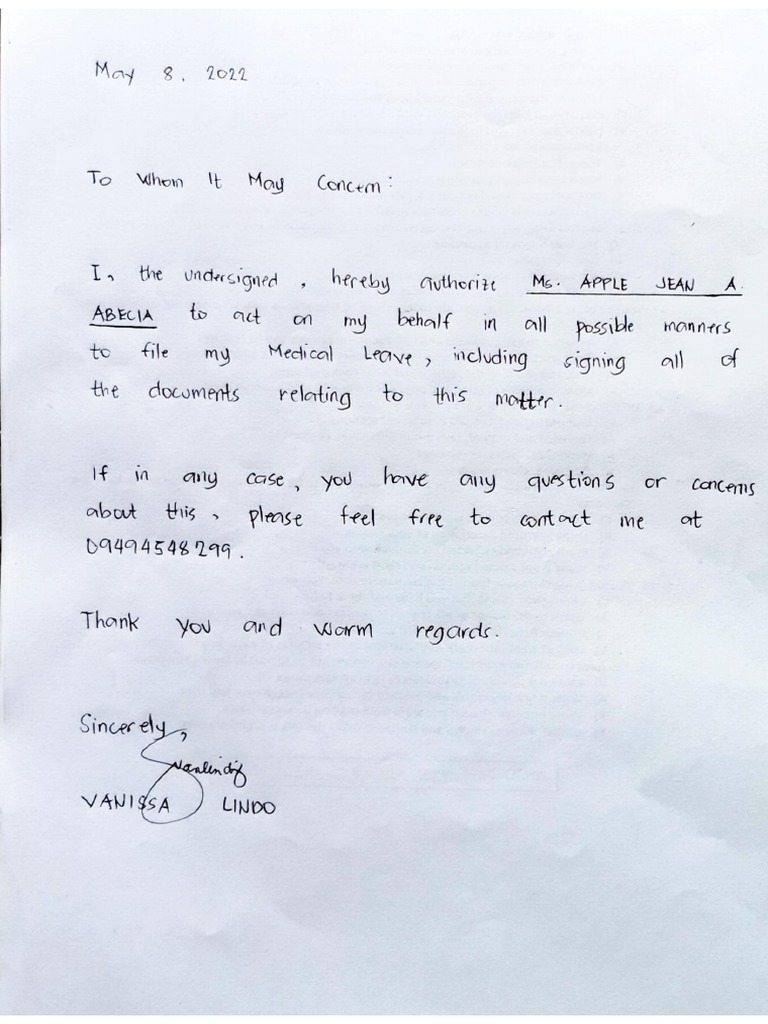 May 8, 2022
To Whom It May Concern:
I, the undersigned, hereby authorize Ms. APPLE JEAN A.
ABECIA to act on my behalf in all possible manners
to file my Medical Leave, including signing all of
the documents relating to this matter.
If in any case, you have any questions or concerns
about this, please feel free to contact me at
09494548299.
Thank you and warm regards.
Sincerely,
VANISSA LINDO